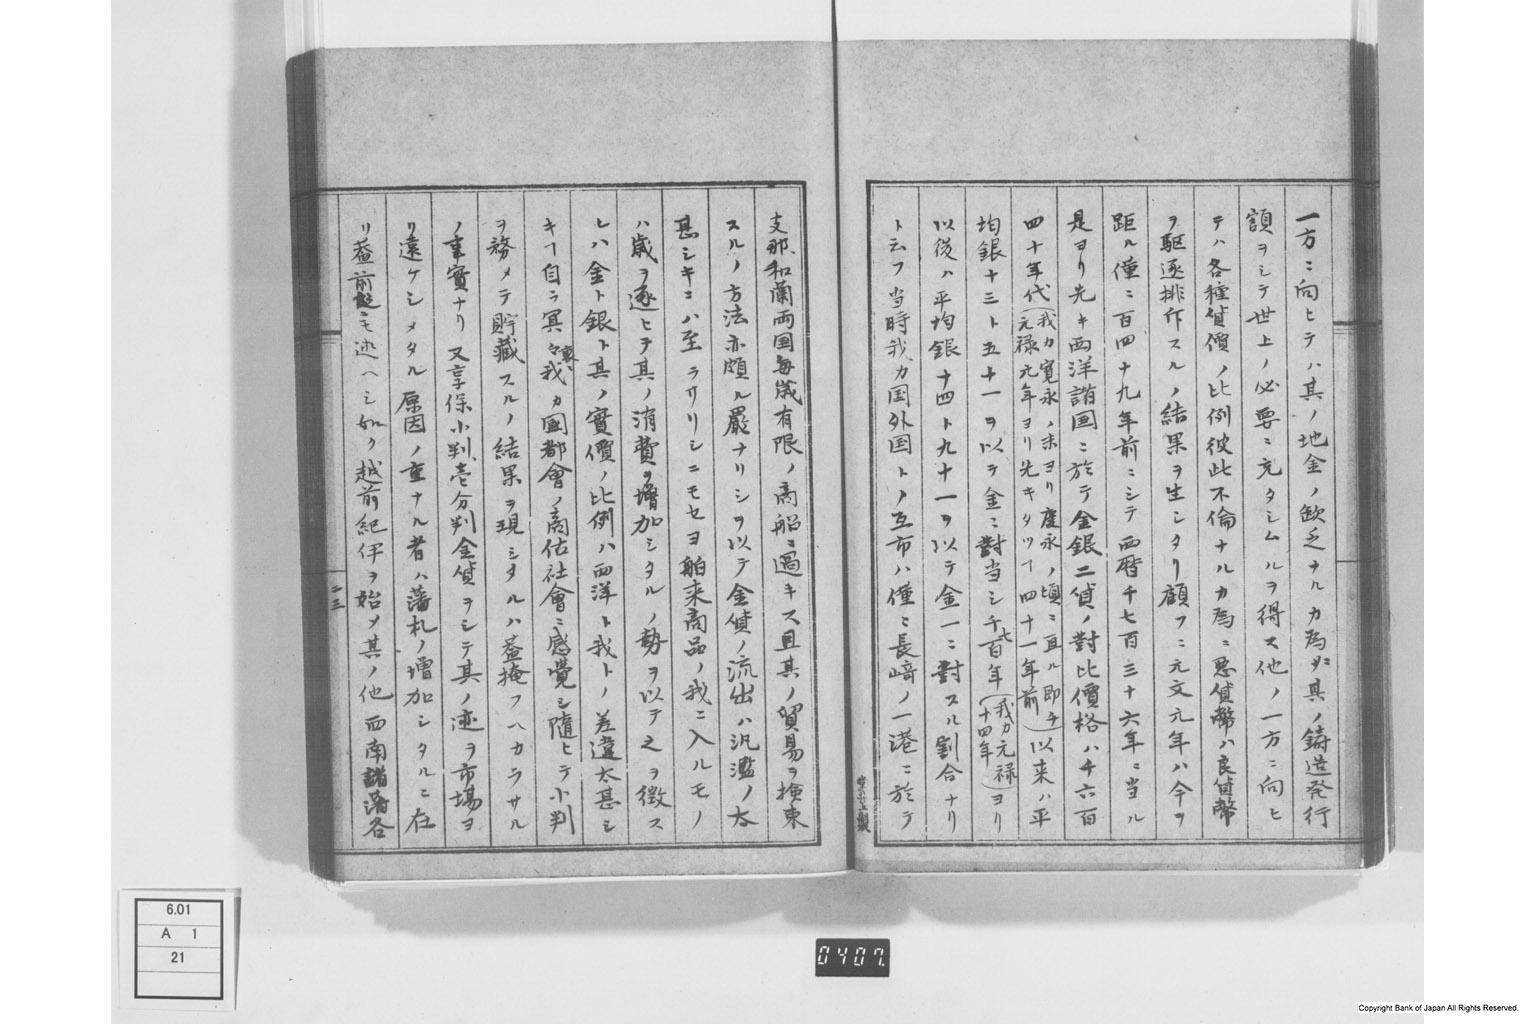 一方ニ向ヒテハ其ノ地金ノ欽乏ナルカ為メ其ノ鋳造発行
額ヲシテ世上ノ必要ニ充タシムルヲ得ス他ノ一方ニ向ヒ
テハ各種貨幣ノ比例彼此不倫ナルカ為ニ悪貨幣ハ良貨幣
ヲ駆逐排斥スルノ結果ヲ生シタリ顧フニ元文元年ハ今ヲ
距ル僅ニ百四十九年前ニシテ西暦千七百三十六年ニ当ル
是ヨリ先キ西洋諸国ニ於テ金銀二貨ノ對比價格ハ千六百
四十年代(我カ寛永ノ末ヨリ慶永ノ頃ニ亘ル即チ
元禄元年ヨリ先キタツ丁四十一年前)以来ハ平
均銀十三ト五十一ヲ以テ金ニ對当シ千七百年(我カ元禄
十四年)ヨリ
以後ハ平均銀十四ト九十一ヲ以テ金一ニ對スル割合ナリ
ト云フ当時我カ国外国トノ互市ハ僅ニ長﨑ノ一港ニ於テ
支那、和蘭両国毎歳有限ノ商船ニ過キス且其ノ貿易ヲ撿束
スルノ方法亦頗ル嚴ナリシヲ以テ金貨ノ流出ハ汎濫ノ太
甚シキニハ至ラサリシニモセヨ舶来商品ノ我ニ入ルモノ
ハ歳ヲ逐ヒテ其ノ消費ヲ増加シタルノ勢ヲ以テ之ヲ徴ス
ヒハ金ト銀ト其ノ實價ノ比例ハ西洋ト我トノ差違太甚シ
キ丁自ラ冥々裏ニ我カ國都會ノ商估社會ニ感覺シ隨ヒテ小判
ヲ務メテ貯藏スルノ結果ヲ現シタルハ蓋掩フヘカラサル
ノ事實ナリ又享保小判、壱分判金貨ヲシテ其ノ迹ヲ市場ヨ
リ遠ケシメタル原因ノ重ナル者ハ藩札ノ増加シタルニ在
リ蓋前段ニモ述ヘシ如ク越前紀伊ヲ始メ其ノ他西南諸藩各
二三
6.01
A 1
21
0407.
Copyright Bank of Japan All Rights Reserved.